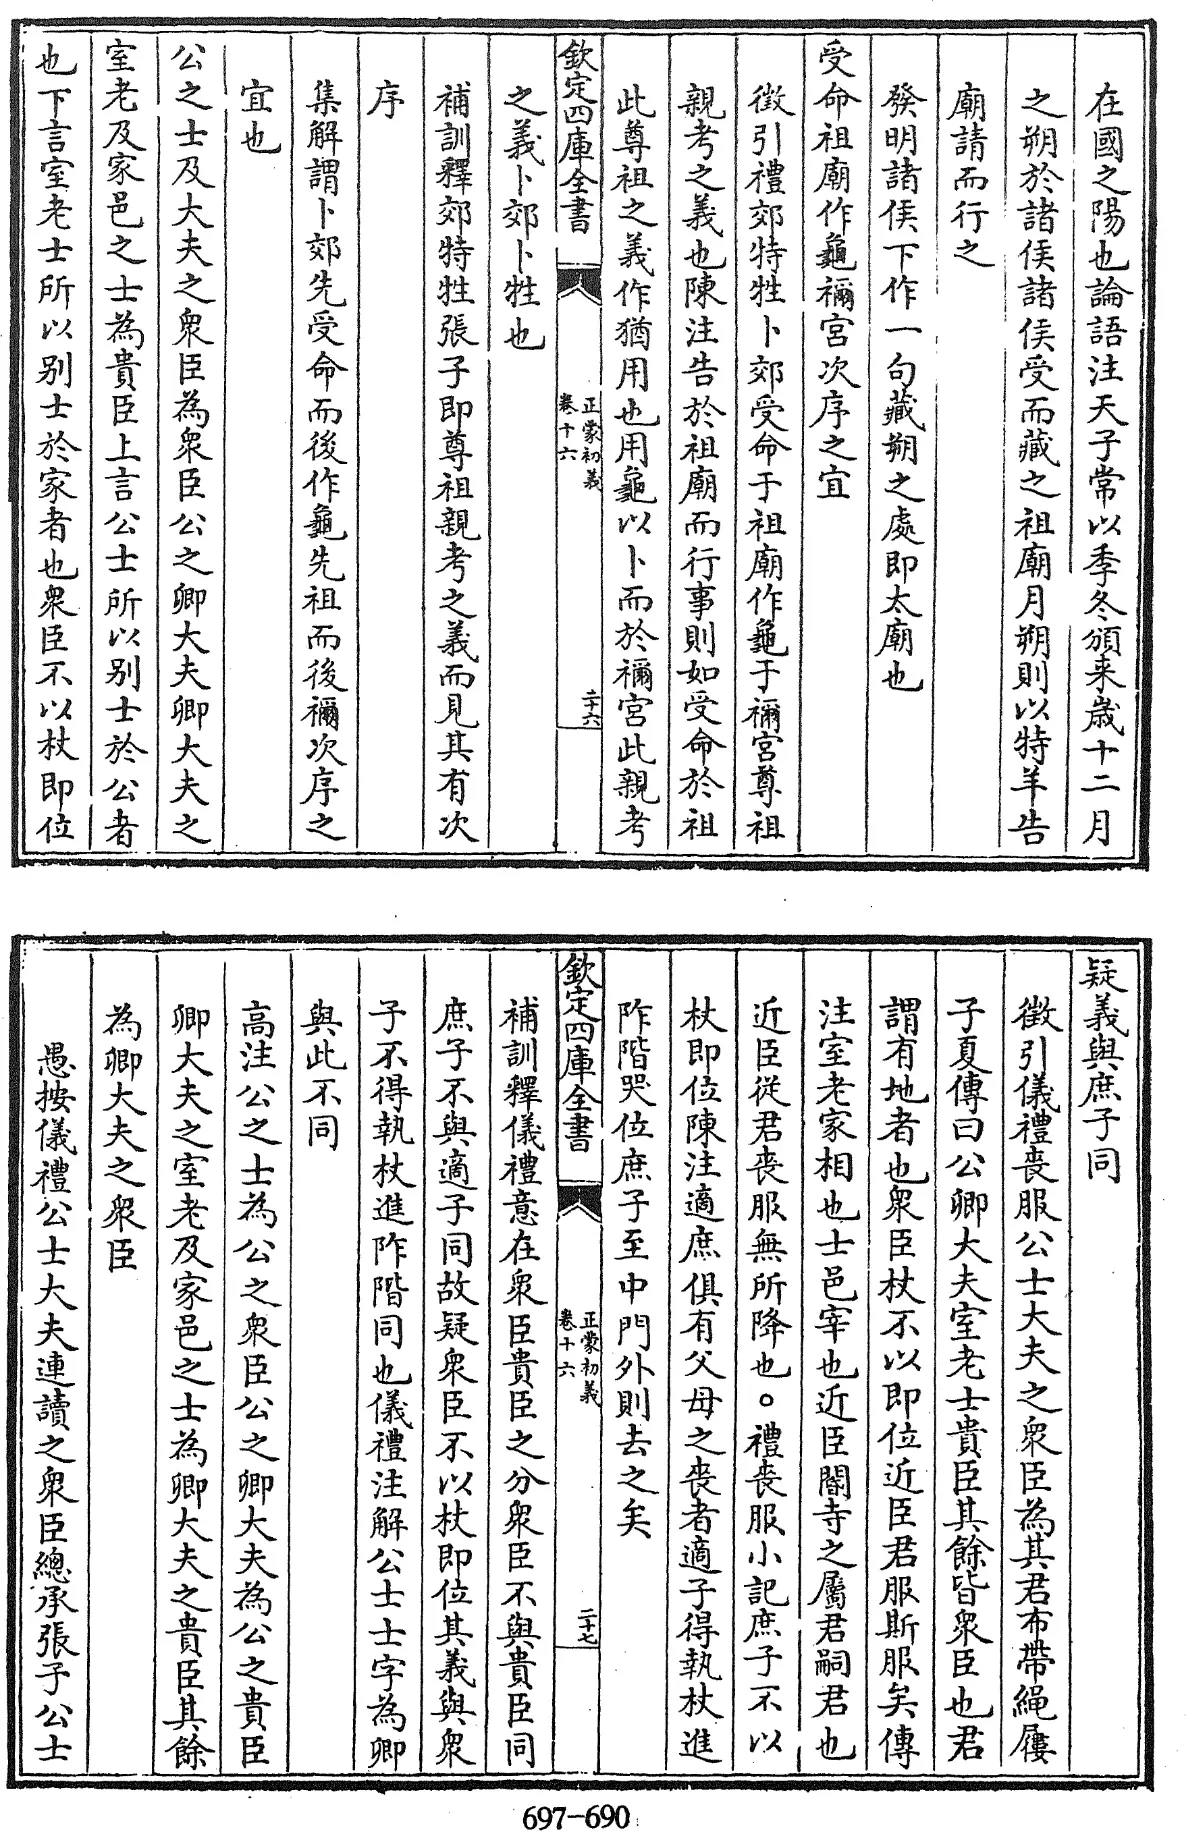 在國之陽也論語注天子常以季冬頒来歲十二月
之朔於諸侯諸侯受而藏之祖廟月朔則以特羊告
廟請而行之
發明諸侯下作一句藏朔之處即太廟也
受命祖廟作龜禰宮次序之宜
徵引禮郊特牲卜郊受命于祖廟作龜于禰宮尊祖
親考之義也陳注告於祖廟而行事則如受命於祖
此尊祖之義作猶用也用龜以卜而於禰宮此親考
欽定四庫全書
正蒙初義
卷十六
二十六
之義卜郊卜牲也
補訓釋郊特牲張子即尊祖親考之義而見其有次
序
集解謂卜郊先受命而後作龜先祖而後禰次序之
宜也
公之士及大夫之衆臣為衆臣公之卿大夫卿大夫之
室老及家邑之士為貴臣上言公士所以别士於公者
也下言室老士所以别士於家者也衆臣不以杖即位
疑義與庶子同
徵引儀禮喪服公士大夫之衆臣為其君布帶繩屨
子夏傳曰公卿大夫室老士貴臣其餘皆衆臣也君
謂有地者也衆臣杖不以即位近臣君服斯服矣傳
注室老家相也士邑宰也近臣閽寺之屬君嗣君也
近臣從君喪服無所降也。禮喪服小記庶子不以
杖即位陳注適庶俱有父母之喪者適子得執杖進
阼階哭位庶子至中門外則去之矣
欽定四庫全書
正蒙初義
卷十六
二十七
補訓釋儀禮意在衆臣貴臣之分衆臣不與貴臣同
庶子不與適子同故疑衆臣不以杖即位其義與衆
子不得執杖進阼階同也儀禮注解公士士字為卿
與此不同
高注公之士為公之衆臣公之卿大夫為公之貴臣
卿大夫之室老及家邑之士為卿大夫之貴臣其餘
為卿大夫之衆臣
愚按儀禮公士大夫連讀之衆臣總承張子公士
697-690